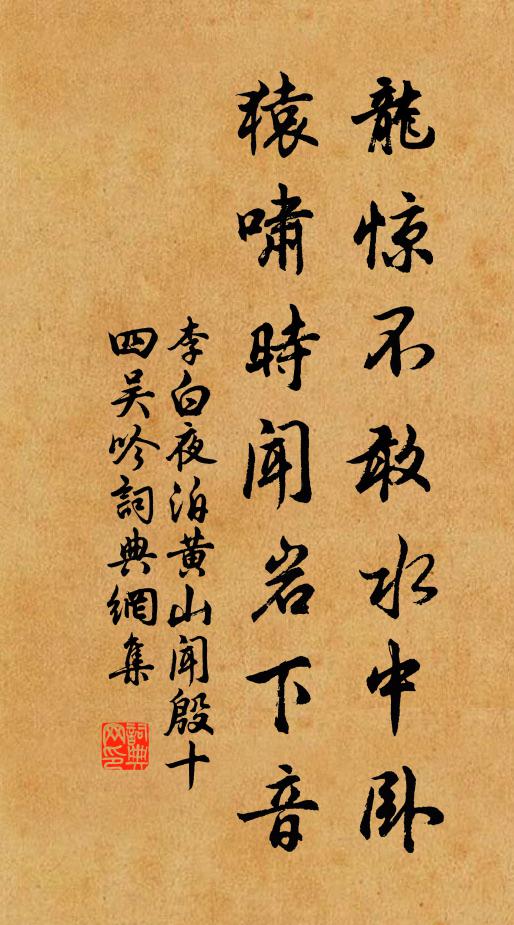 龍惊不敢水中卧
猿嘯時闻岩下音
李白夜泊黄山闻殷十
四吴吟詞典網集
詞典
网印